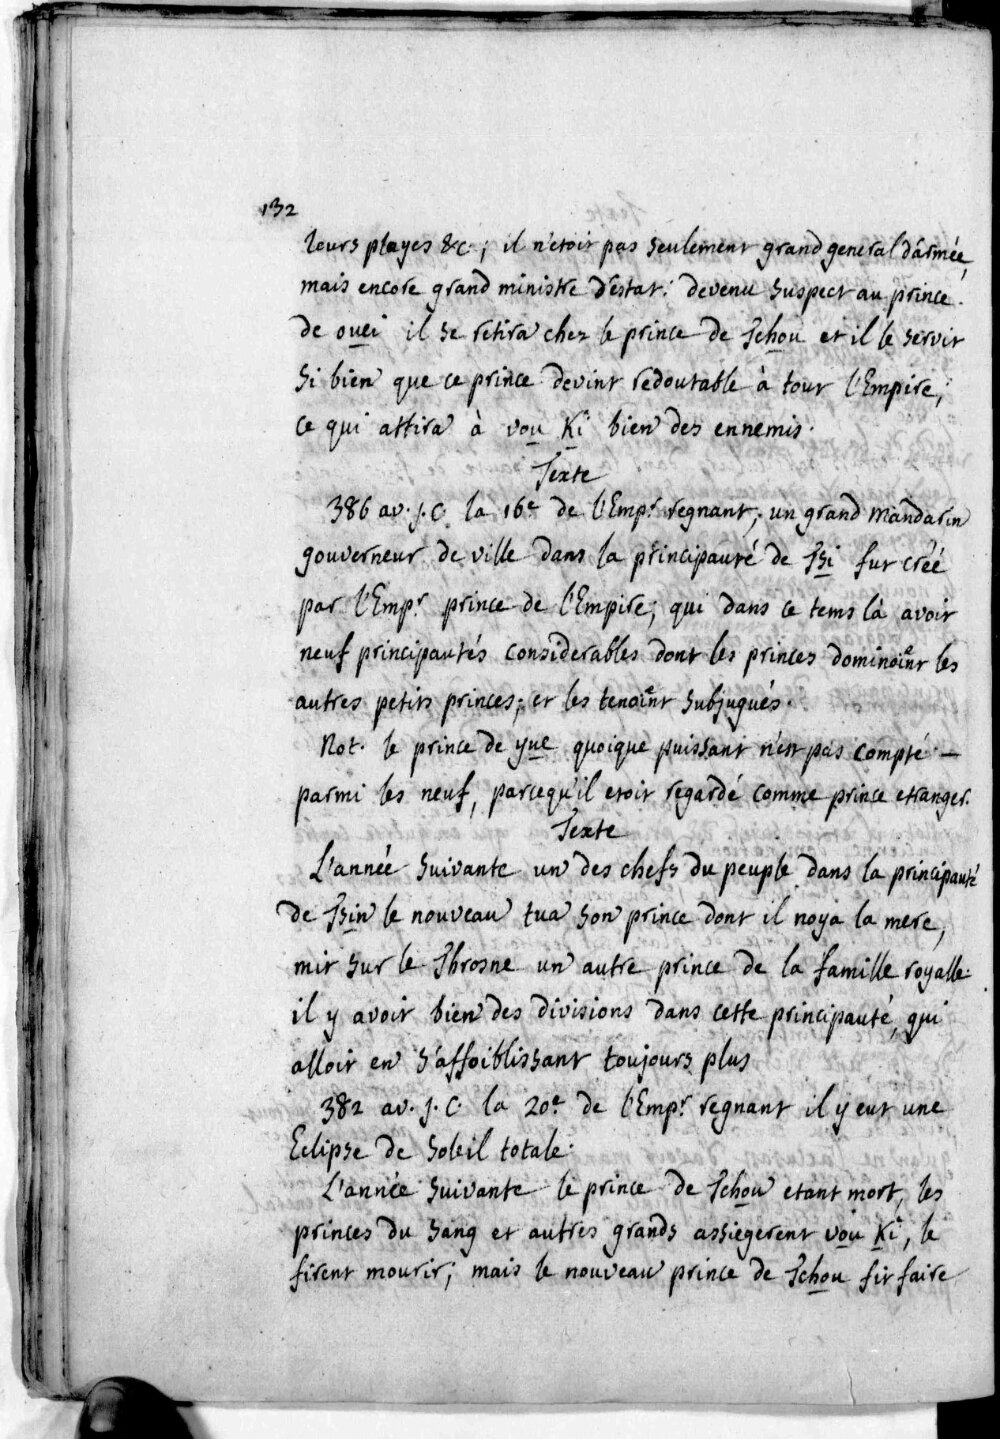 132
leurs playes &c.; il n'etoit pas seulement grand general d'armée,
mais encore grand ministre d'estat: devenu suspect au prince
de ouei il se retira chez le prince de Tchou et il le servit
si bien que ce prince devint redoutable à tout l'Empire;
ce qui attira à vou Ki bien des ennemis.
Texte
386 av. J. C. la 16e de l'Empr regnant; un grand Mandarin
gouverneur de ville dans la principauté de Tsi fut créé
par l'Empr prince de l'Empire; qui dans ce tems là avoit
neuf principautés considerables dont les princes dominoient les
autres petits princes; et les tenoient subjugués.
Not. le prince de yue quoique puissant n'est pas compté —
parmi les neuf, parcequ'il etoit regardé comme prince etranger.
Texte
L'année suivante un des chefs du peuple dans la principauté
de Tsin le nouveau tua son prince dont il noya la mere,
mit sur le Throsne un autre prince de la famille royalle.
il y avoit bien des divisions dans cette principauté, qui
alloit en s'affoiblissant toujours plus
382 av. J. C. la 20e de l'Empr regnant il y eut une
Eclipse de soleil totale.
L'année suivante le prince de Tchou etant mort, les
princes du sang et autres grands assiegerent vou Ki, le
firent mourir; mais le nouveau prince de Tchou fit faire